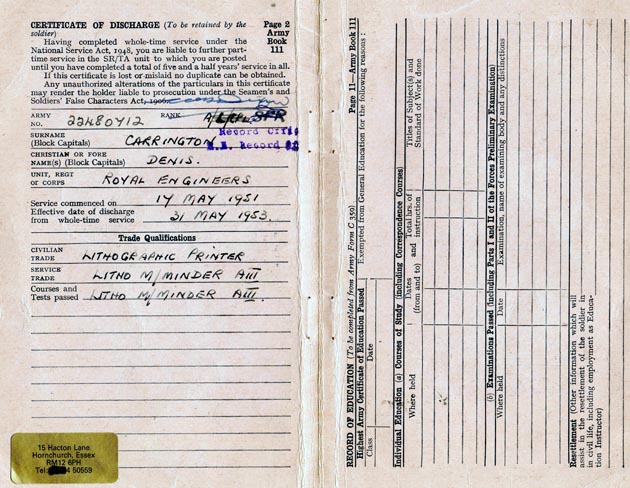 CERTIFICATE OF DISCHARGE (To be retained by the soldier)
Page 2
Army
Book
111
Having completed whole-time service under the
National Service Act, 1948, you are liable to further part-
time service in the SR/TA unit to which you are posted
until you have completed a total of five and a half years' service in all.
If this certificate is lost or mislaid no duplicate can be obtained.
Any unauthorized alterations of the particulars in this certificate
may render the holder liable to prosecution under the Seamen's and
Soldiers' False Characters Act, 1906.
ARMY NO. 22480412 RANK SPR
Record Office
R.E. Record
SURNAME (Block Capitals) CARRINGTON
CHRISTIAN OR FORE NAME(S) (Block Capitals) DENIS.
UNIT, REGT OR CORPS ROYAL ENGINEERS
Service commenced on 17 MAY 1951
Effective date of discharge from whole-time service 31 MAY 1953.
Trade Qualifications
CIVILIAN TRADE LITHOGRAPHIC PRINTER
SERVICE TRADE LITHO M/MINDER AIII
Courses and Tests passed LITHO M/MINDER AIII.
15 Hacton Lane
Hornchurch, Essex
RM12 6PH
Tel: 4 50559
RECORD OF EDUCATION (To be completed from Army Form C 359) Page 11—Army Book 111
Highest Army Certificate of Education Passed
Exempted from General Education for the following reasons:
Class
Date
Individual Education (a) Courses of Study (including Correspondence Courses)
Where held
Dates (from and to)
Total hrs. of and instruction
Titles of Subject(s) and Standard of Work done
(b) Examinations Passed (including Parts I and II of the Forces Preliminary Examination)
Where held
Date
Examination, name of examining body and any distinctions
Resettlement (Other information which will
assist in the resettlement of the soldier in
in civil life, including employment as Educa-
tion Instructor)